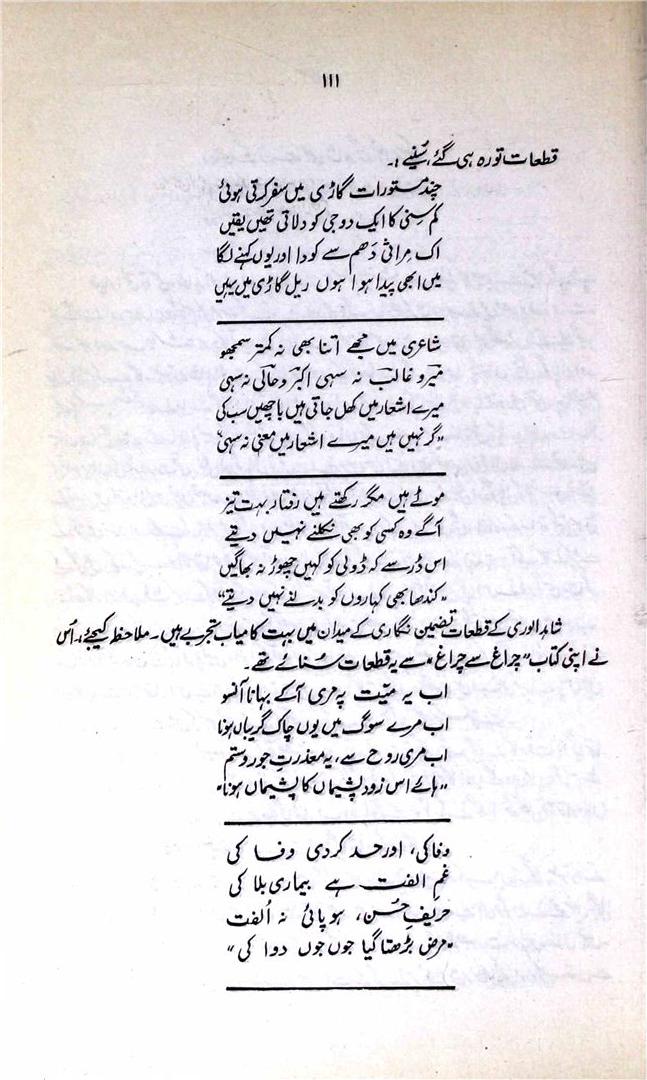 ۱۱۱
قطعات تو رہ ہی گئے، سُنیے :۔
چند مستورات گاڑی میں سفر کرتی ہوئی
کم سِنی کا ایک دوجی کو دلاتی تھیں یقیں
اک مراثی دَھم سے کودا اور یوں کہنے لگا
میں ابھی پیدا ہوا ہوں ریل گاڑی میں یہیں
شاعری میں مجھے اتنا بھی نہ کمتر سمجھو
میر و غالب نہ سہی اکبر و حالی نہ سہی
میرے اشعار میں کھل جاتی ہیں باچھیں سب کی
"گر نہیں ہیں میرے اشعار میں معنی نہ سہی"
موٹے ہیں مگر رکھتے ہیں رفتار بہت تیز
آگے وہ کسی کو بھی نکلنے نہیں دیتے
اس ڈر سے کہ ڈولی کو کہیں چھوڑ نہ بھاگیں
"کندھا بھی کہاروں کو بدلنے نہیں دیتے"
شاہد الوری کے قطعات تضمین نگاری کے میدان میں بہت کامیاب تجربے ہیں۔ ملاحظہ کیجئے، اُس
نے اپنی کتاب "چراغ سے چراغ" سے یہ قطعات سُنائے تھے۔
اب یہ میّت پہ مری آ کے بہانا آنسو
اب مرے سوگ میں یوں چاک گریباں ہونا
اب مری روح سے، یہ معذرتِ جور و ستم
"ہائے اس زود پشیماں کا پشیماں ہونا"
وفا کی، اور حد کر دی وفا کی
غمِ الفت ہے بیماری بلا کی
حریفِ حُسن، ہو پائی نہ اُلفت
"مرض بڑھتا گیا جوں جوں دوا کی"